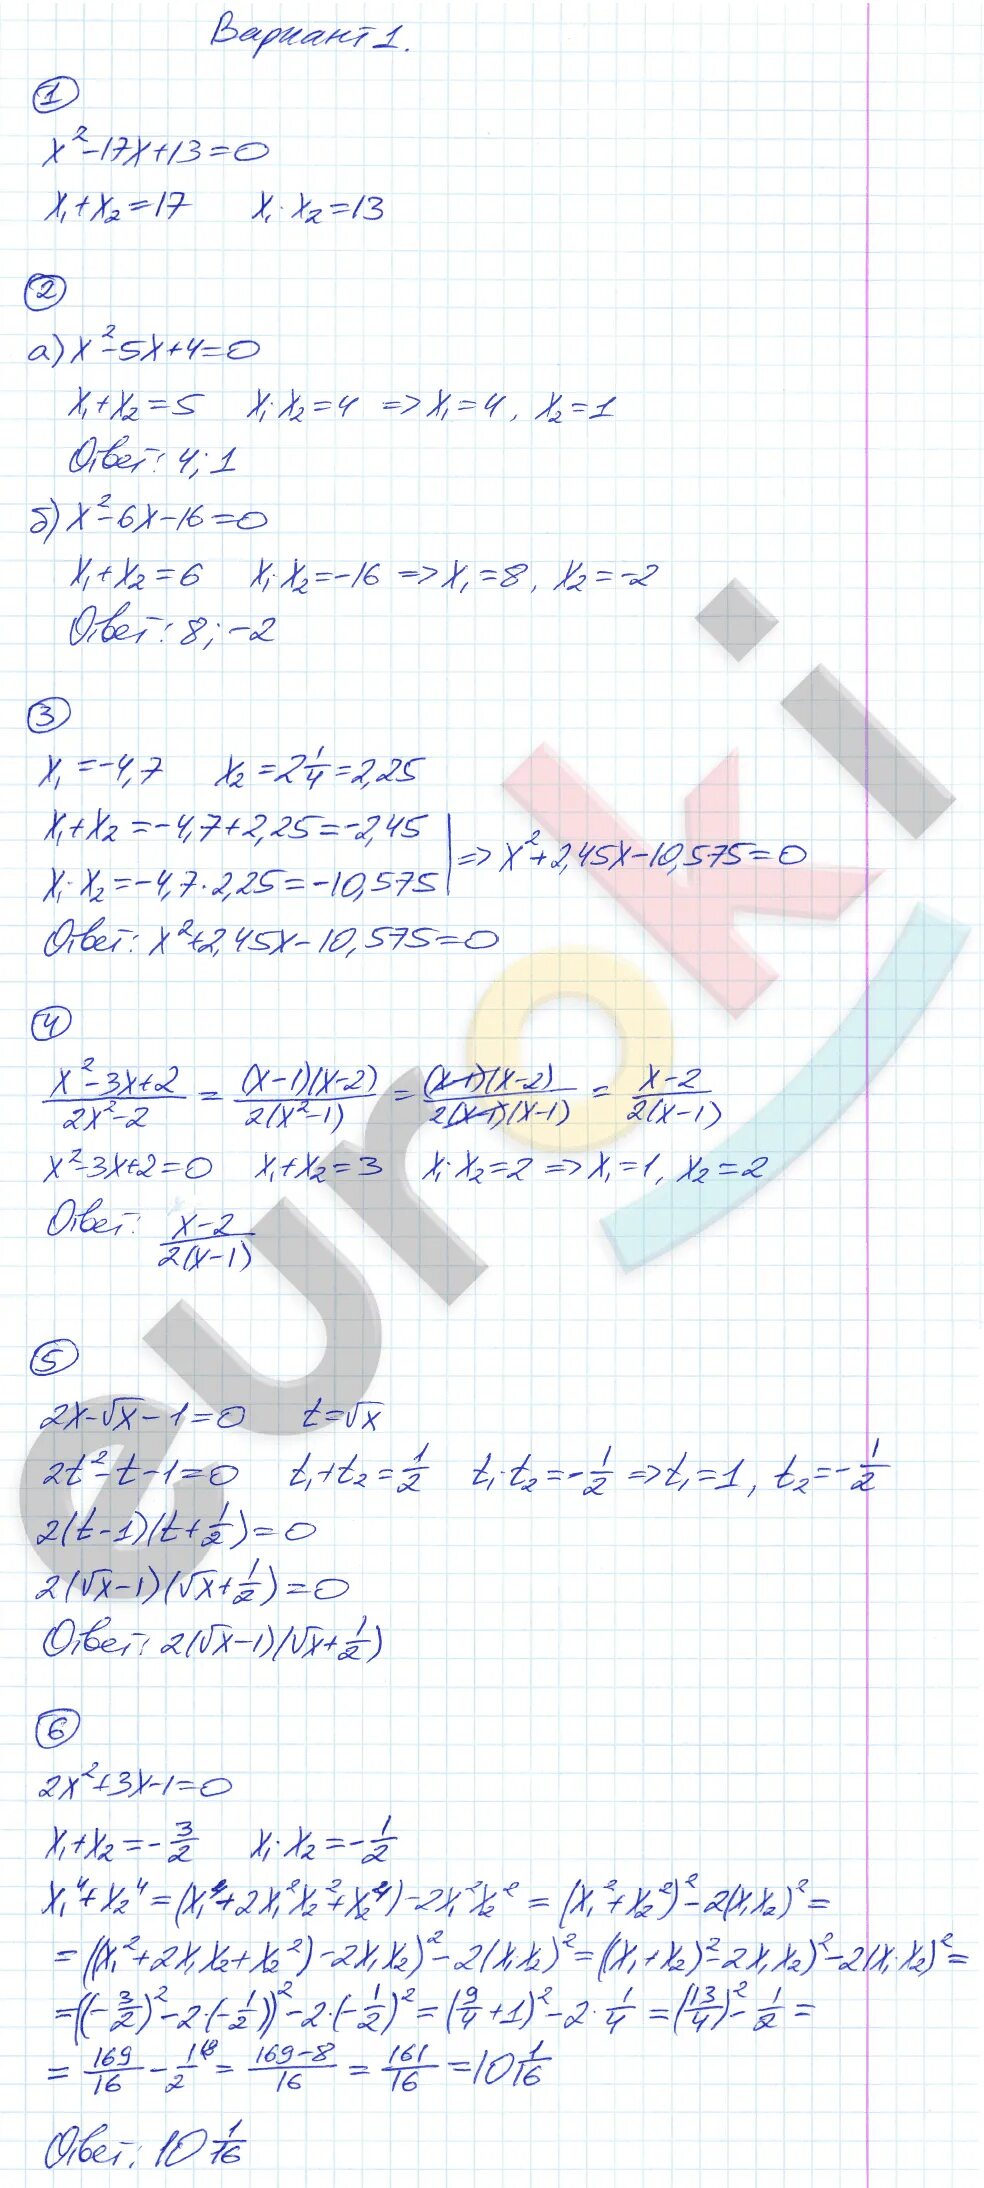 Вариант 1.
1
x² - 17x + 13 = 0
x₁ + x₂ = 17 x₁ · x₂ = 13
2
а) x² - 5x + 4 = 0
x₁ + x₂ = 5 x₁ · x₂ = 4 => x₁ = 4, x₂ = 1
Ответ: 4; 1
б) x² - 6x - 16 = 0
x₁ + x₂ = 6 x₁ · x₂ = -16 => x₁ = 8, x₂ = -2
Ответ: 8; -2
3
x₁ = -4,7 x₂ = 2 1/4 = 2,25
x₁ + x₂ = -4,7 + 2,25 = -2,45
x₁ · x₂ = -4,7 · 2,25 = -10,575 | => x² + 2,45x - 10,575 = 0
Ответ: x² + 2,45x - 10,575 = 0
4
(x² - 3x + 2)/(2x² - 2) = ((x-1)(x-2))/(2(x²-1)) = ((x-1)(x-2))/(2(x-1)(x-1)) = (x-2)/(2(x-1))
x² - 3x + 2 = 0 x₁ + x₂ = 3 x₁ · x₂ = 2 => x₁ = 1, x₂ = 2
Ответ: (x-2)/(2(x-1))
5
2x - √x - 1 = 0 t = √x
2t² - t - 1 = 0 t₁ + t₂ = 1/2 t₁ · t₂ = -1/2 => t₁ = 1, t₂ = -1/2
2(t-1)(t + 1/2) = 0
2(√x - 1)(√x + 1/2) = 0
Ответ: 2(√x - 1)(√x + 1/2)
6
2x² + 3x - 1 = 0
x₁ + x₂ = -3/2 x₁ · x₂ = -1/2
x₁⁴ + x₂⁴ = (x₁⁴ + 2x₁²x₂² + x₂⁴) - 2x₁²x₂² = (x₁² + x₂²)² - 2(x₁x₂)² =
= ((x₁² + 2x₁x₂ + x₂²) - 2x₁x₂)² - 2(x₁x₂)² = ((x₁ + x₂)² - 2x₁x₂)² - 2(x₁·x₂)² =
= ((-3/2)² - 2·(-1/2))² - 2·(-1/2)² = (9/4 + 1)² - 2 · 1/4 = (13/4)² - 1/2 =
= 169/16 - 1/2 ⁸ = (169-8)/16 = 161/16 = 10 1/16
Ответ: 10 1/16
euroki